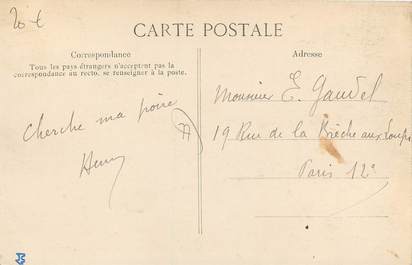 20 €
CARTE POSTALE
Correspondance
Tous les pays étrangers n'acceptent pas la
correspondance au recto, se renseigner à la poste.
Cherche ma poire
Henry
Adresse
Monsieur E. Gaudel
19 Rue de la Brèche aux Loups
Paris 12e